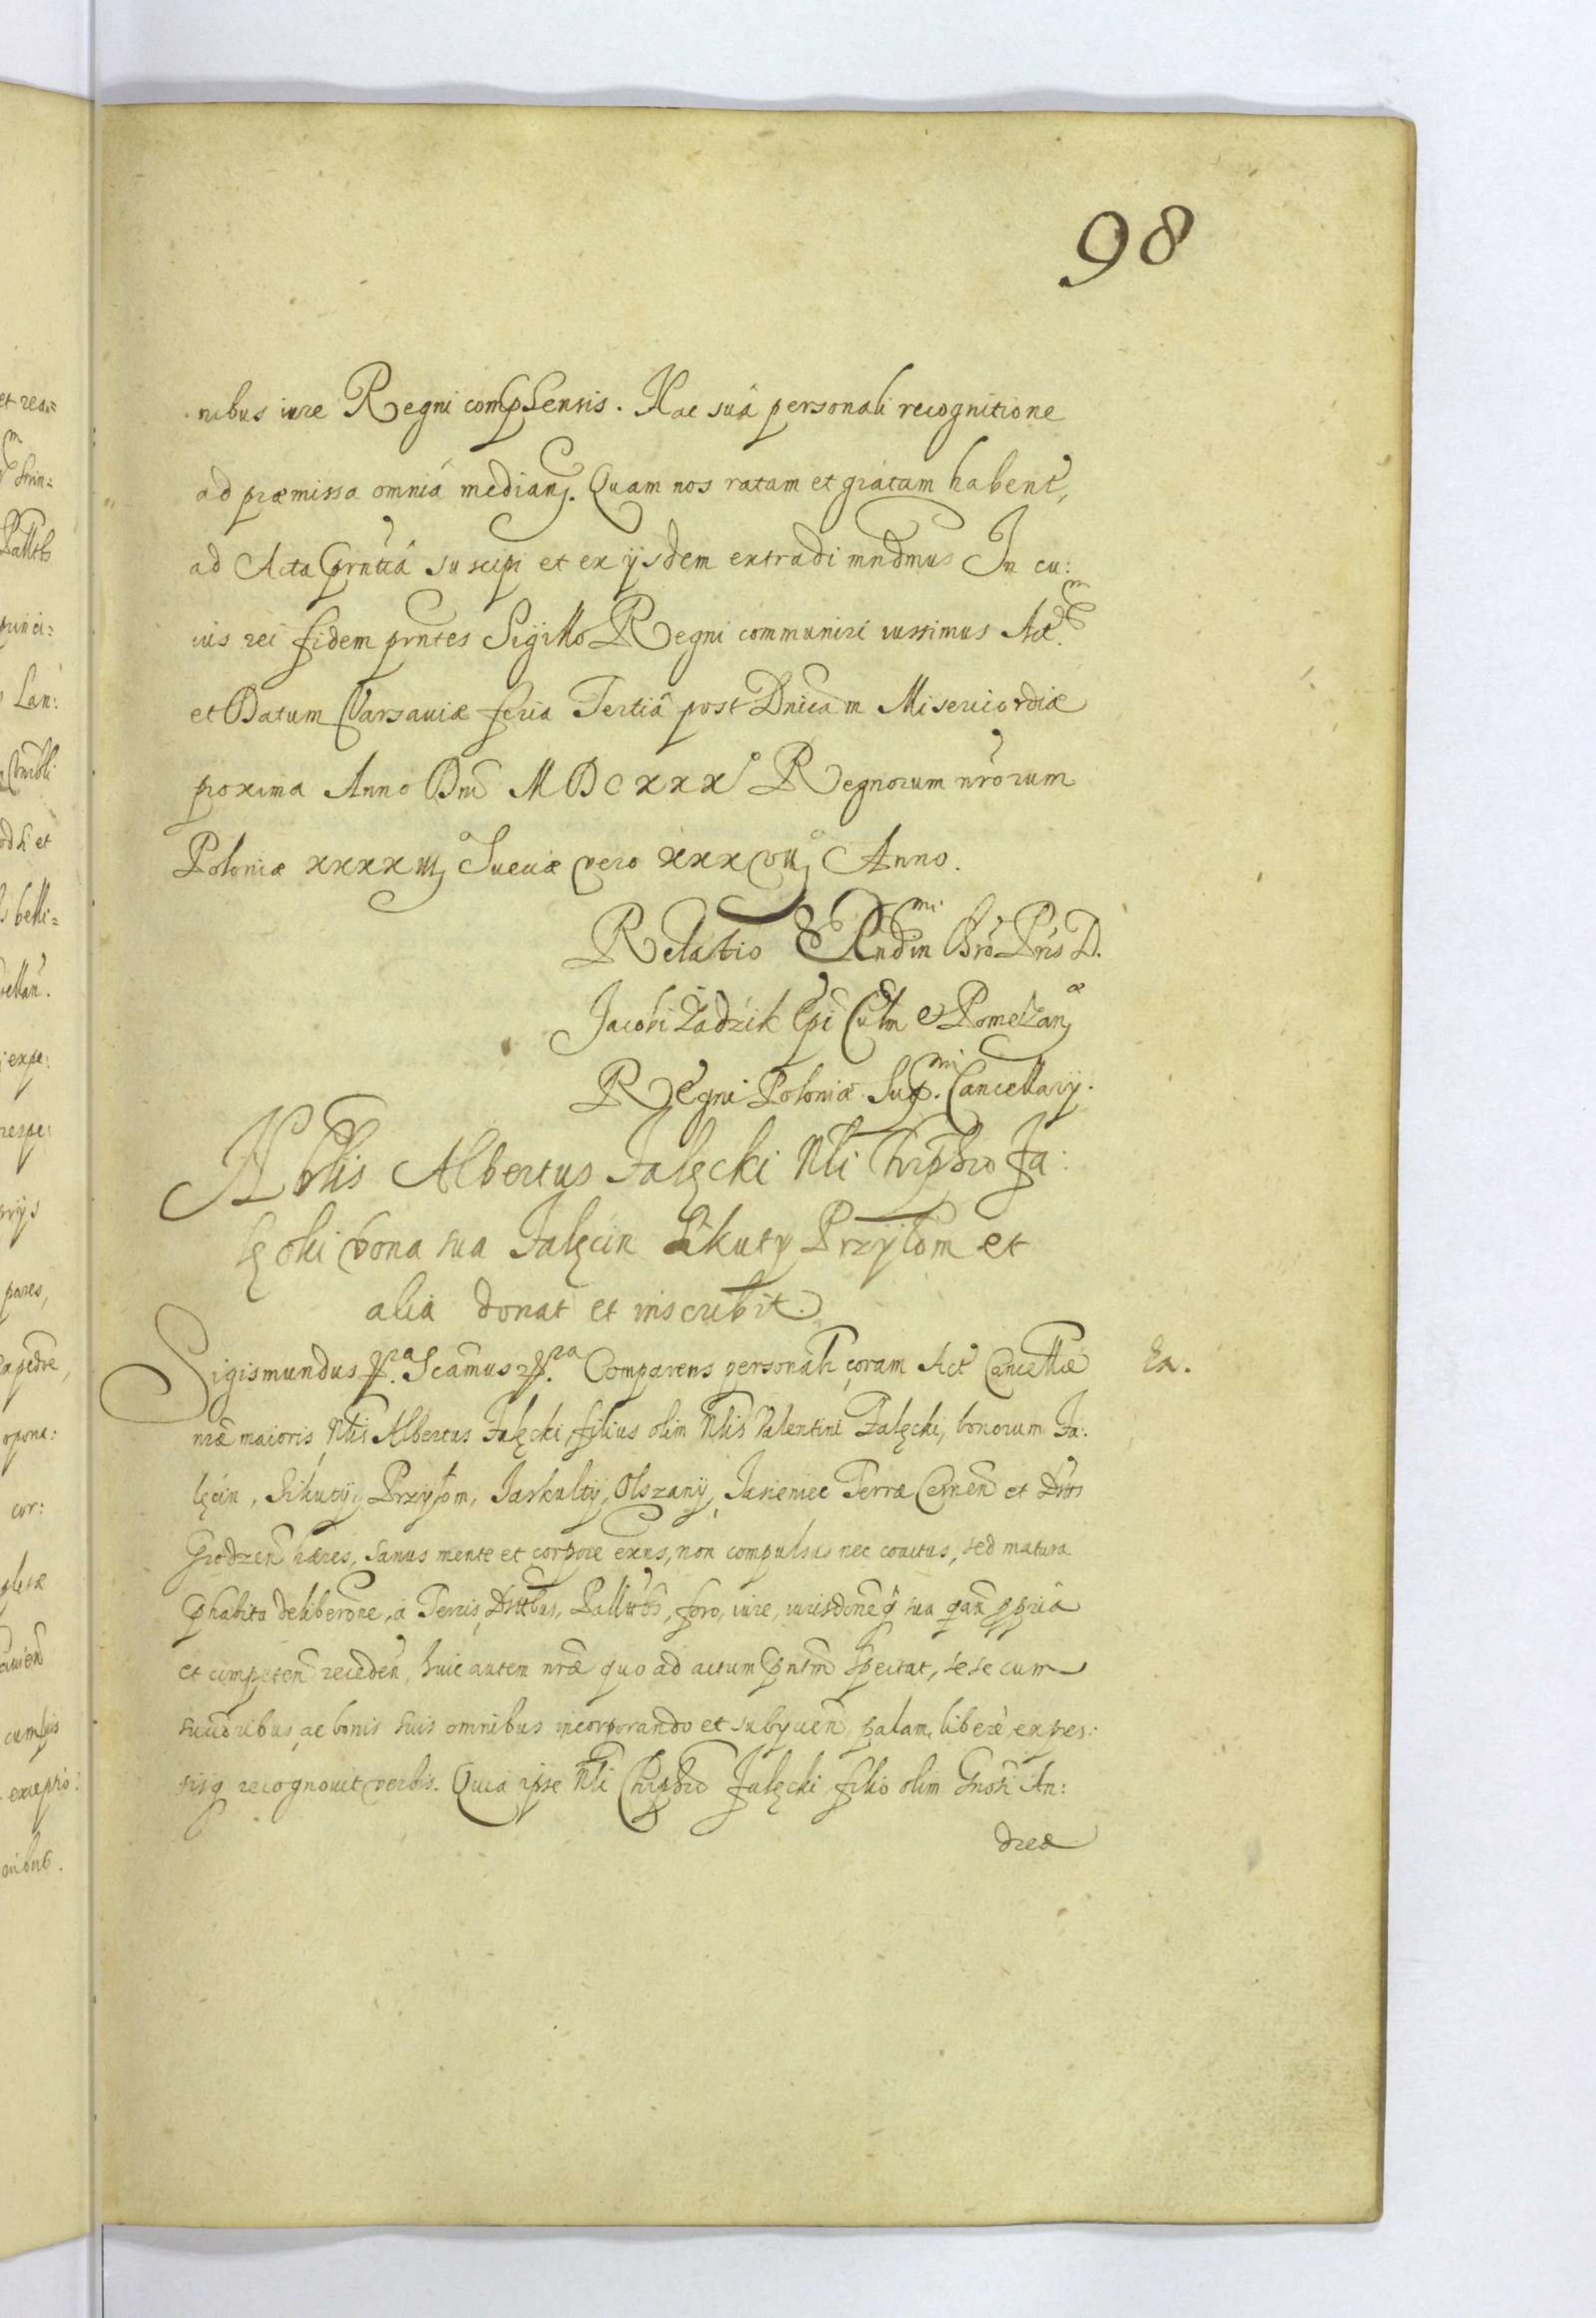 98
nibus iure Regni comphensis. Hac suâ personali recognitione
ad præmissa omnia median. Quam nos ratam et gratam habent,
ad Acta prntia suscipi et ex ijsdem extradi mndmus In cu:
ius rei fidem prntes Sigillo Regni communiri iussimus Act.m
et Datum Varsaviæ feria Tertiâ post Dnicam Misericordiæ
proxima Anno Dni MDCXXX° Regnorum nrorum
Poloniæ xxxxiij Sueciæ vero xxxvij Anno.
Relatio Rndmi Xro Pris D.
Jacobi Zadzik Epi Culm et Pomezan
Regni Poloniæ Sup.mi Cancellarij.
Nblis Albertus Jalęcki Nli Chrphro Ja:
lęcki bona sua Jalęcin Sikuty Przyłom et
alia donat et inscribit.
Sigismundus Scamus Comparens personali coram Act Cancellæ
Ex.
nræ maioris Nlis Albertus Jalęcki, filius olim Nlis Valentini Jalęcki, bonorum Ja:
lęcin, Sikuty, Przyłom, Jaskulty, Olszany, Jasieniec Terræ Cernen et Dsts
Grodzen hæres, sanus mente et corpore exns, non compulsus nec coactus, sed matura
phabita deliberone, a Terris, Dsttbus, Pallttbs, foro, iure, iurisdoneq sua ppria
et competen receden, huic autem nræ quo ad actum pntem spectat, sese cum
succoribus, ac bonis suis omnibus incorporando et subycien, palam, liberè, expres:
sisq recognovit verbis. Quia ipse Nli Chrphro Jalęcki filio olim Gnosi An:
dreæ